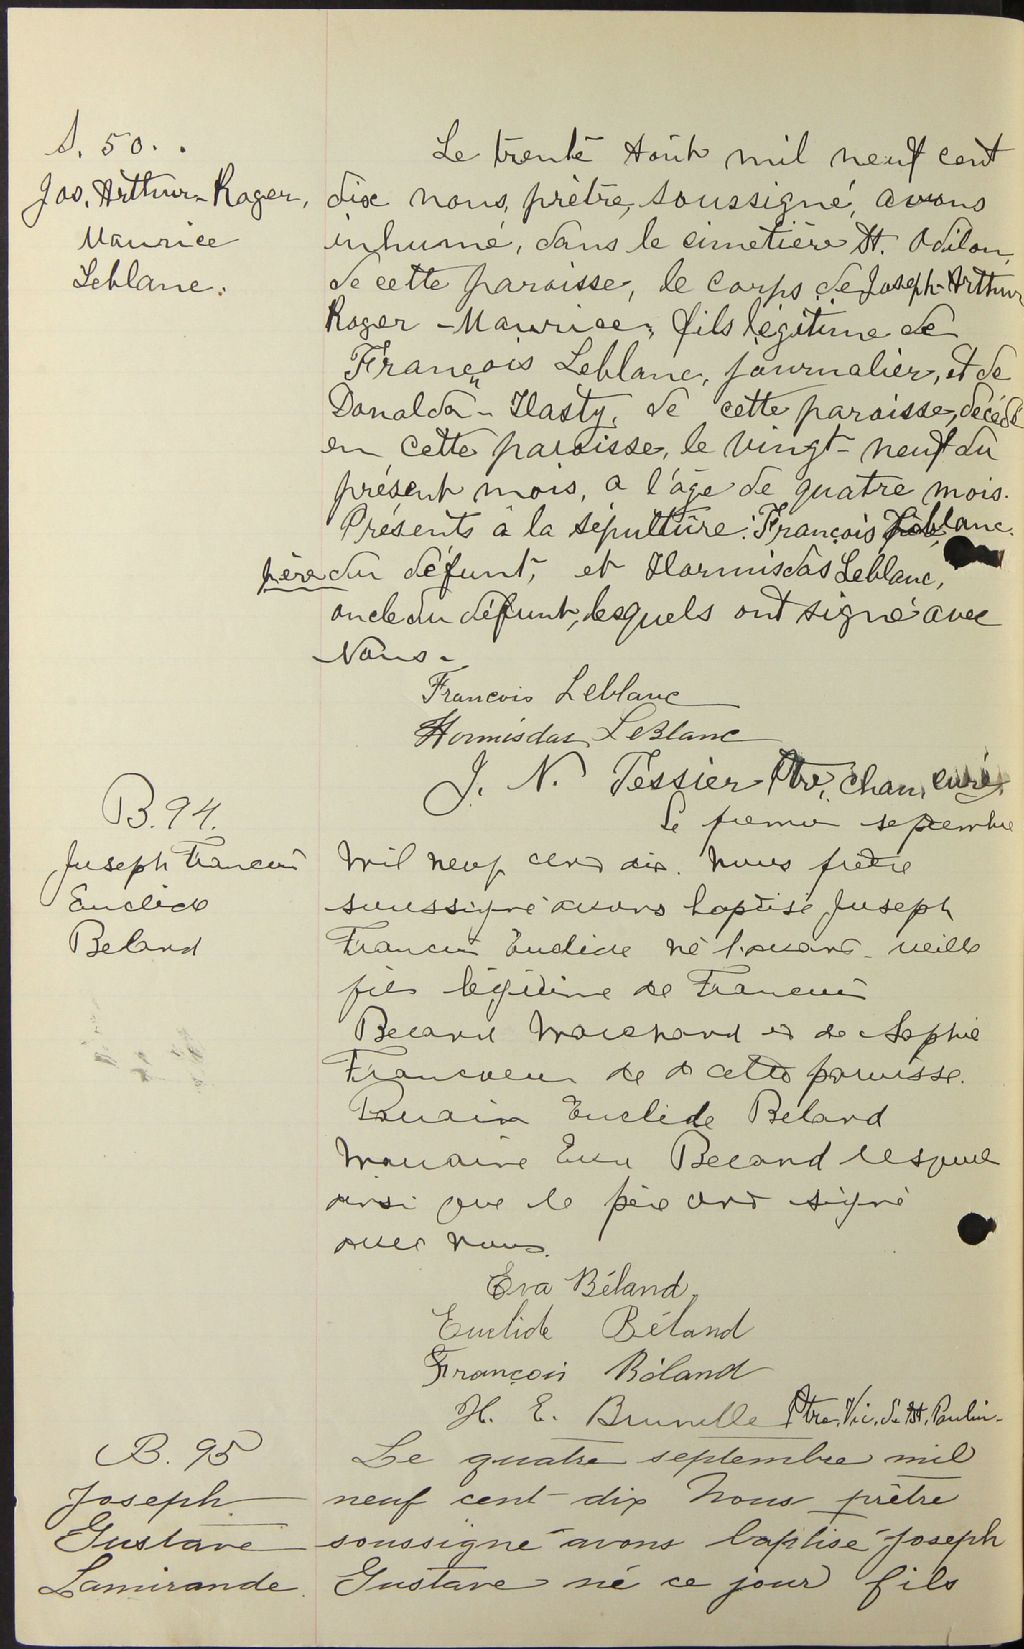 S. 50.
Jos. Arthur-Roger,
Maurice
Leblanc.
Le trente Août mil neuf cent
dix nous, prêtre, soussigné, avons
inhumé, dans le cimetière St. Odilon,
de cette paroisse, le corps de Joseph-Arthur
Roger-Maurice, fils légitime de
François Leblanc, journalier, et de
Donalda-Hasty, de cette paroisse, décédé
en cette paroisse, le vingt-neuf du
présent mois, a l'âge de quatre mois.
Présents à la sépulture: François Leblanc.
père du défunt, et Hormisdas Leblanc,
oncle du défunt, lesquels ont signé avec
Nous.
Francois Leblanc
Hormisdas LeBlanc
J. N. Tessier Ptre, Chan, curé.
B. 94.
Joseph Francois
Euclide
Beland
Le premier septembre
mil neuf cent dix. nous prêtre
soussigné avons baptisé Joseph
Francois Euclide né l'avant-veille
fils légitime de Francois
Beland marchand et de Sophie
Francoeur de cette paroisse.
Parrain Euclide Beland
marraine Eva Beland lesquels
ainsi que le père ont signé
avec nous.
Eva Béland,
Euclide Béland
François Béland
H. E. Brunelle Ptre, Vic. de St. Paulin-
B. 95
Joseph
Gustave
Lamirande.
Le quatre septembre mil
neuf cent dix Nous prêtre
soussigné avons baptisé Joseph
Gustave né ce jour fils